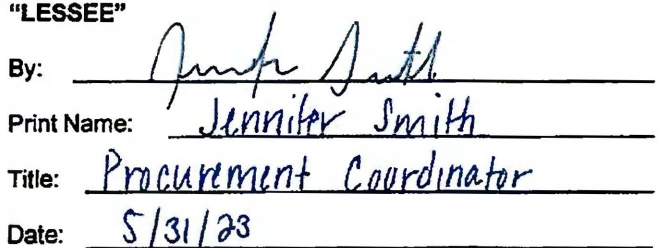 "LESSEE"
By: Jennifer Smith
Print Name: Jennifer Smith
Title: Procurement Coordinator
Date: 5/31/23